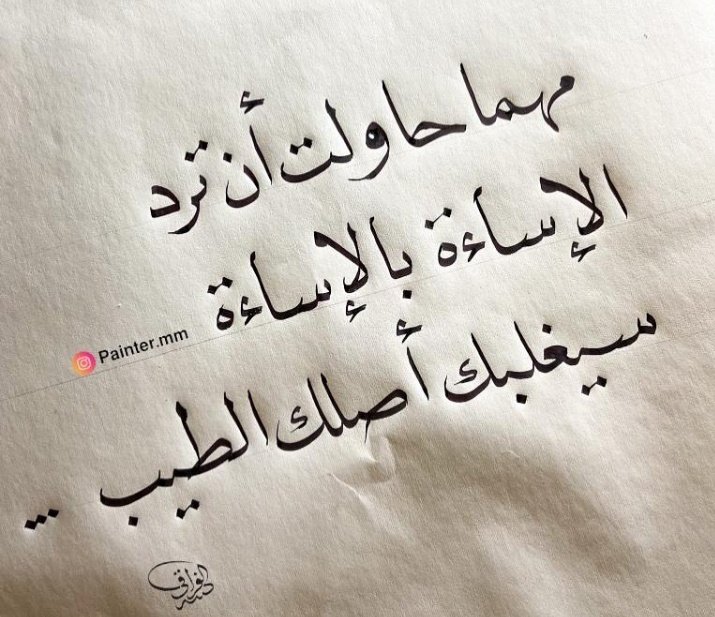 مهما حاولت أن ترد
الإساءة بالإساءة
Painter.mm
سيغلبك أصلك الطيب ...